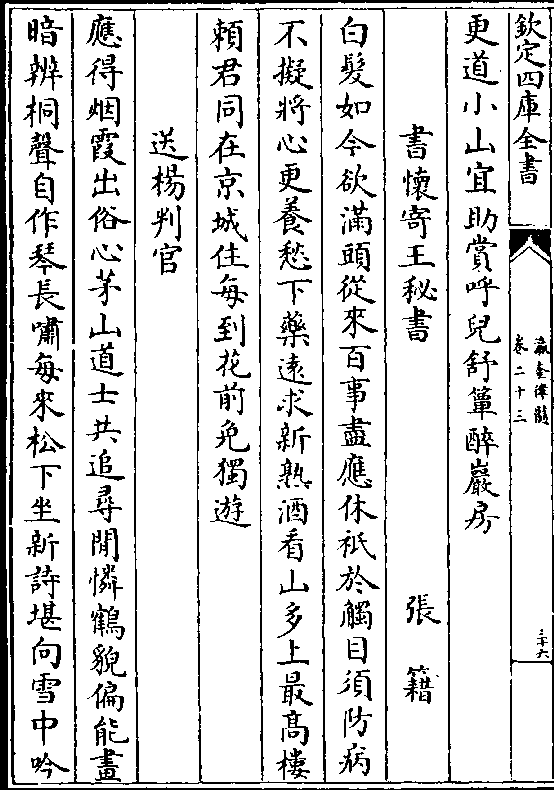 欽定四庫全書
瀛奎律髓
卷二十三
三十六
更道小山宜助賞呼兒舒簟醉巖房
書懷寄王秘書 張籍
白髮如今欲滿頭從來百事盡應休祇於觸目須防病
不擬將心更養愁下藥遠求新熟酒看山多上最高樓
賴君同在京城住每到花前免獨遊
送楊判官
應得烟霞出俗心茅山道士共追尋閒憐鶴貌偏能畫
暗辨桐聲自作琴長嘯每來松下坐新詩堪向雪中吟